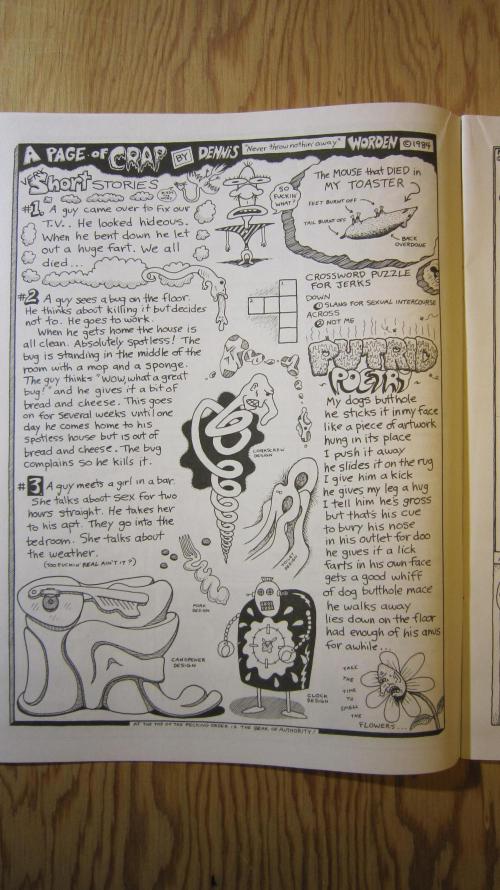 A PAGE OF CRAP BY DENNIS "Never throw nothin' away" WORDEN © 1984
VERY Short STORIES
#1. A guy came over to fix our
T.V.. He looked hideous.
When he bent down he let
out a huge fart. We all
died...
SO
FUCKIN'
WHAT!
The MOUSE that DIED in
MY TOASTER
FEET BURNT OFF
TAIL BURNT OFF
BACK
OVERDONE
CROSSWORD PUZZLE
FOR JERKS
DOWN
① SLANG FOR SEXUAL INTERCOURSE
ACROSS
② NOT ME
#2 A guy sees a bug on the floor.
He thinks about killing it but decides
not to. He goes to work.
When he gets home the house is
all clean. Absolutely spotless! The
bug is standing in the middle of the
room with a mop and a sponge.
The guy thinks "Wow, what a great
bug!" and he gives it a bit of
bread and cheese. This goes
on for several weeks until one
day he comes home to his
spotless house but is out of
bread and cheese. The bug
complains so he kills it.
#3 A guy meets a girl in a bar.
She talks about sex for two
hours straight. He takes her
to his apt. They go into the
bedroom. She talks about
the weather.
(TOO FUCKIN' REAL AIN'T IT?)
CORKSCREW
DESIGN
TOILET
DESIGN
FORK
DESIGN
CANOPENER
DESIGN
CLOCK
DESIGN
PUTRID
POETRY
My dogs butthole
he sticks it in my face
like a piece of artwork
hung in its place
I push it away
he slides it on the rug
I give him a kick
he gives my leg a hug
I tell him he's gross
but that's his cue
to bury his nose
in his outlet for doo
he gives it a lick
farts in his own face
gets a good whiff
of dog butthole mace
he walks away
lies down on the floor
had enough of his anus
for awhile...
TAKE
THE
TIME
TO
SMELL
THE
FLOWERS...
AT THE TOP OF THE PECKING ORDER IS THE BEAK OF AUTHORITY!